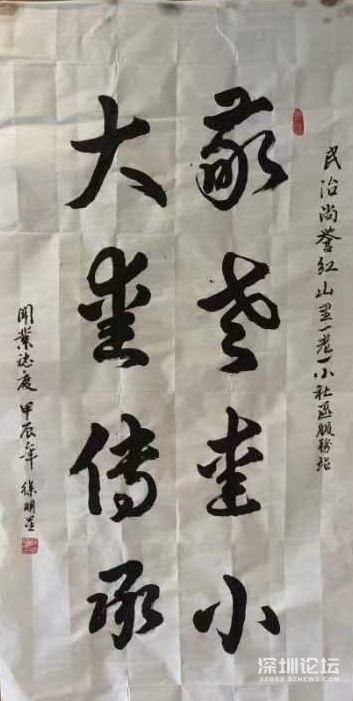 民治尚誉红山里一老一小社区服务站
敬老爱小
大爱传承
開業誌慶 甲辰年 徐明
深圳论坛
SZBBS.SZNEWS.COM